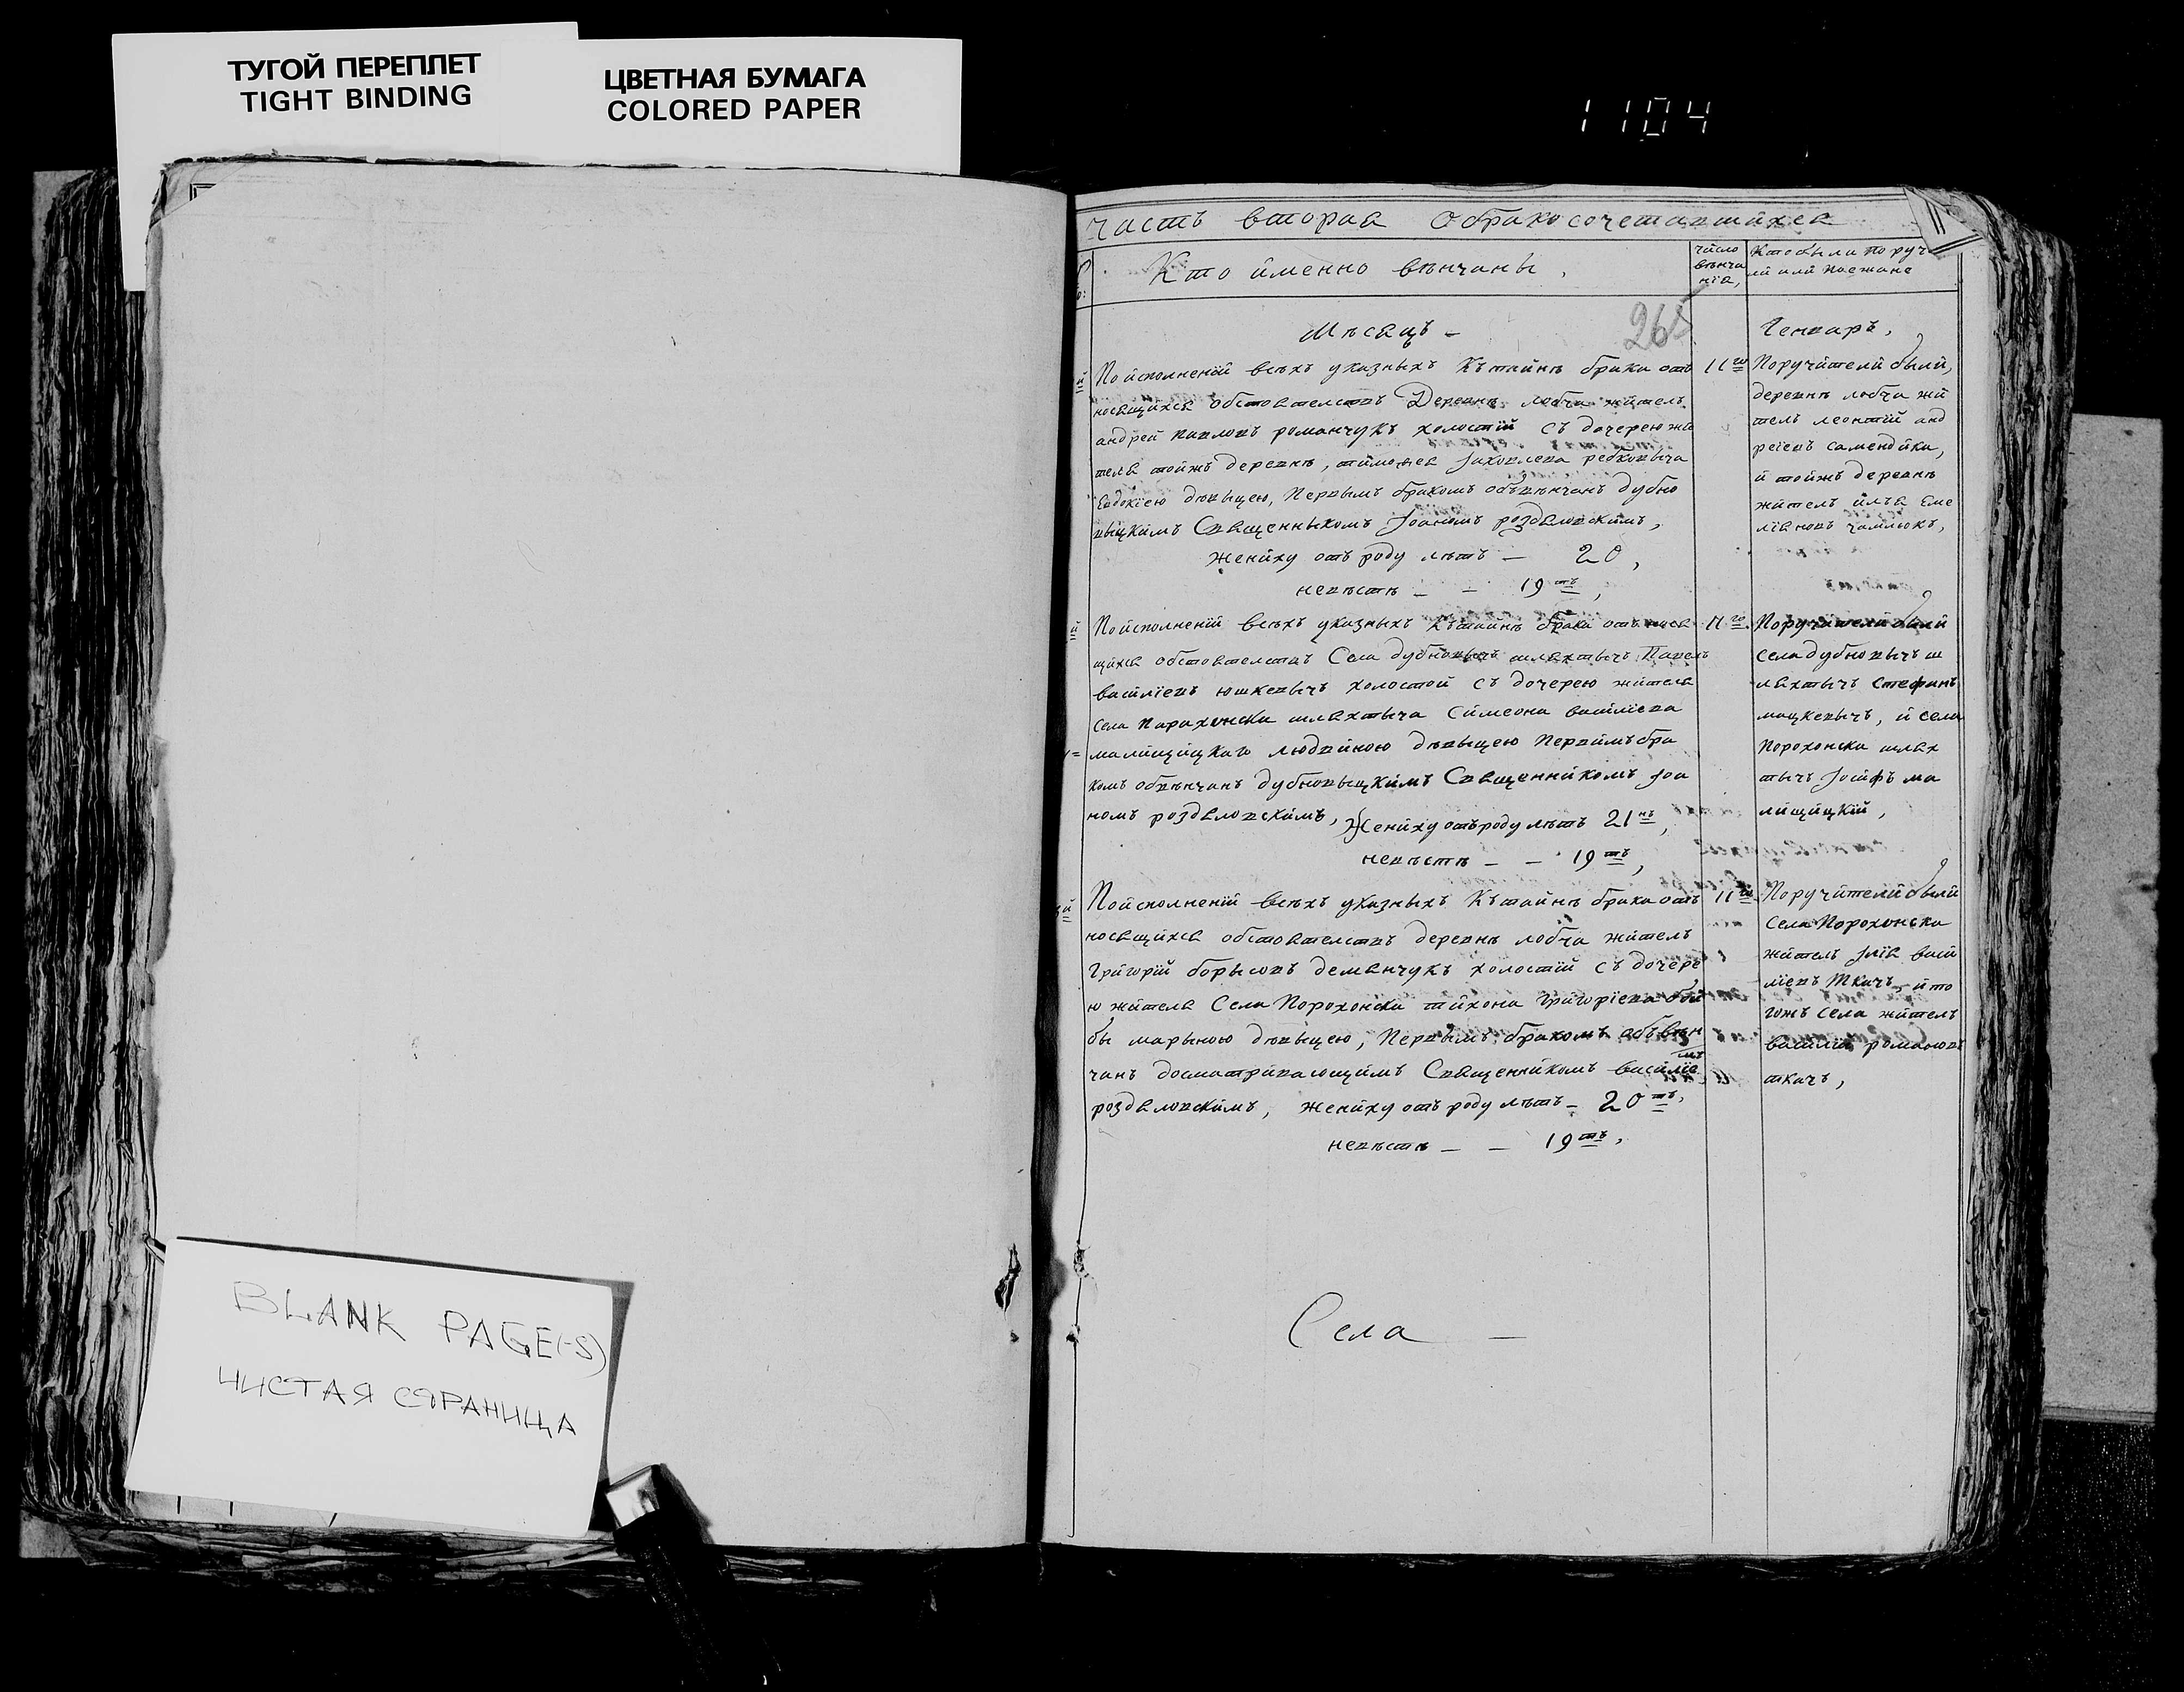 ТУГОЙ ПЕРЕПЛЕТ
TIGHT BINDING
ЦВЕТНАЯ БУМАГА
COLORED PAPER
1104
BLANK PAGE(-S)
ЧИСТАЯ СТРАНИЦА
часть вторая Обракосочетавшихся
Кто именно вѣнчаны,
число
вѣнча
нія,
Кто были поруч
ли или поезжане
265
Мѣсяцъ –
Генваръ,
По исполненіи всѣхъ указныхъ Къ тайнѣ брака отъ
носящихся обстоятелствъ Деревнѣ лобча жителъ
андрей павловъ романчукъ холостій съ дочерею жи
теля тойжъ деревнѣ, тимофея Іаковлева редковыча
Евдокіею дѣвыцею, Первымъ бракомъ объвѣнчанъ дубно
выцкимъ Священныкомъ Іоаномъ роздяловскимъ,
жениху отъ роду лѣтъ – 20,
невѣстѣ – – 19 тъ,
11 го
Поручители были,
деревнѣ лобча жи
тель леонтій анд
реіевъ самендика,
и тойжъ деревнѣ
жителъ илъя Еме
ліановъ чамлюкъ,
По исполненіи всѣхъ указныхъ Къ тайнѣ брака отъ нося
щихся обстоятелствъ Села дубновычъ шляхтычъ Павелъ
василіевъ юшкевычъ холостой съ дочерею жителя
села Парахонска шляхтыча Симеона василіева
малищицкаго людвиною дѣвыцею Первимъ бра
комъ обвѣнчанъ дубновыцкимъ Священникомъ Іоа
номъ роздяловскимъ,
Жениху отъ роду лѣтъ 21 нъ,
невѣстѣ – – 19 тъ,
11 го
Поручители были
села дубновычъ ш
ляхтычъ стефанъ
мацкевычъ, и села
Порохонска шлях
тычъ Іосифъ ма
лищицкій,
По исполненіи всѣхъ указныхъ Къ тайнѣ брака отъ
носящихся обстоятелствъ деревнѣ лобча жителъ
Григорій борысовъ демянчукъ холостій съ дочере
ю жителя Села Порохонска тихона Григоріева
бы марыною дѣвыцею, Первымъ бракомъ объвѣн
чанъ досматривающимъ Священникомъ василіе
мъ
роздяловскимъ, жениху отъ роду лѣтъ – 20 тъ,
невѣстѣ – – 19 тъ,
11 го
Поручители были
села Порохонска
жителъ Іліа васи
ліевъ Ткачъ, и то
гожъ села жителъ
василій романовъ
ткачъ,
Села –